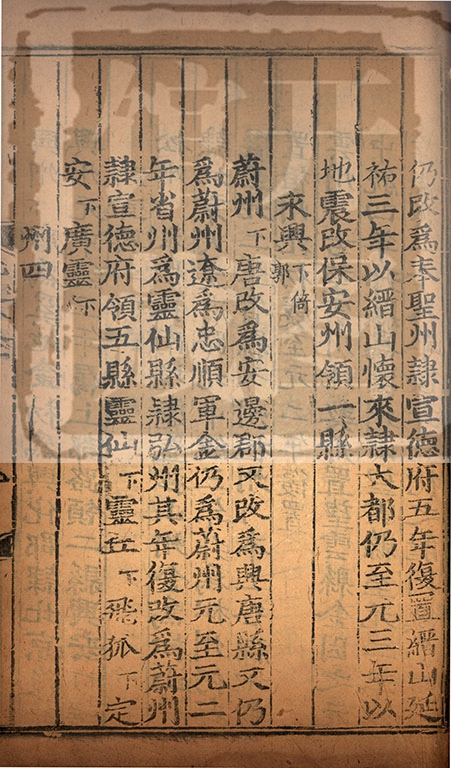 仍改爲奉聖州隷宣德府五年復置縉山延
祐三年以縉山懷來隷大都仍至元三年以
地震改保安州領一縣
永興下倚郭
蔚州下唐改爲安邊郡又改爲興唐縣又仍
爲蔚州遼爲忠順軍金仍爲蔚州元至元二
年省州爲靈仙縣隷弘州其年復改爲蔚州
隷宣德府領五縣靈仙下靈丘下飛狐下定
安下廣靈下
州四